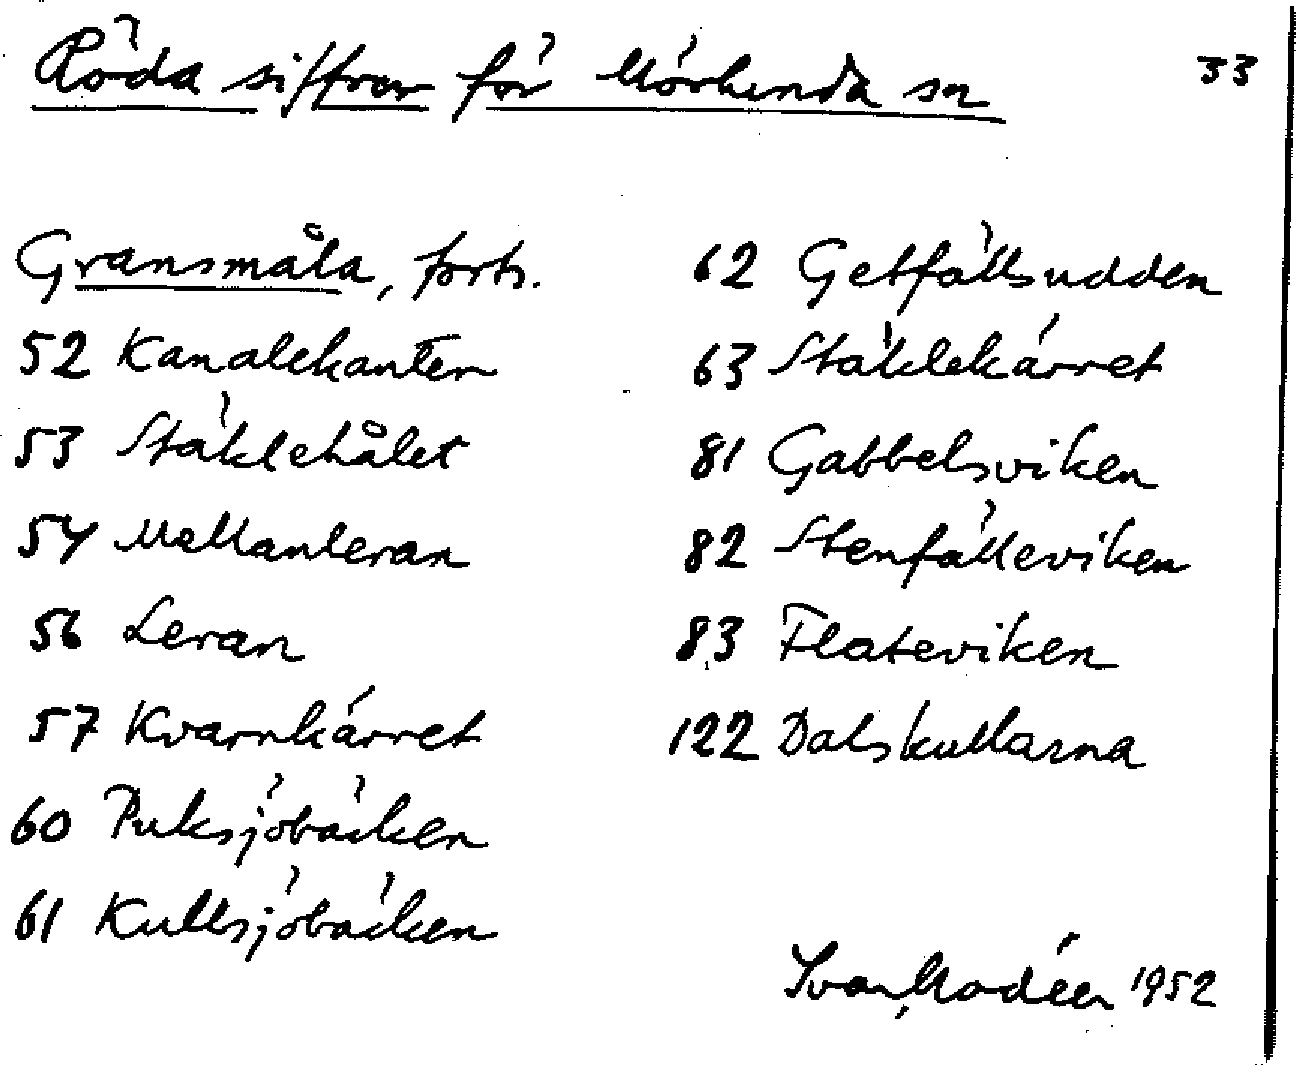 Röda siffror för Mörlunda sn 33
Gransmåla, forts.
52 Kanalekanten
53 Stäklehålet
54 Mellanleran
56 Leran
57 Kvarnkärret
60 Puksjöbäcken
61 Kullsjöbäcken
62 Getfällsudden
63 Stäklekärret
81 Gabbelsviken
82 Stenfälleviken
83 Flateviken
122 Dalskullarna
Ivar Modéer 1952